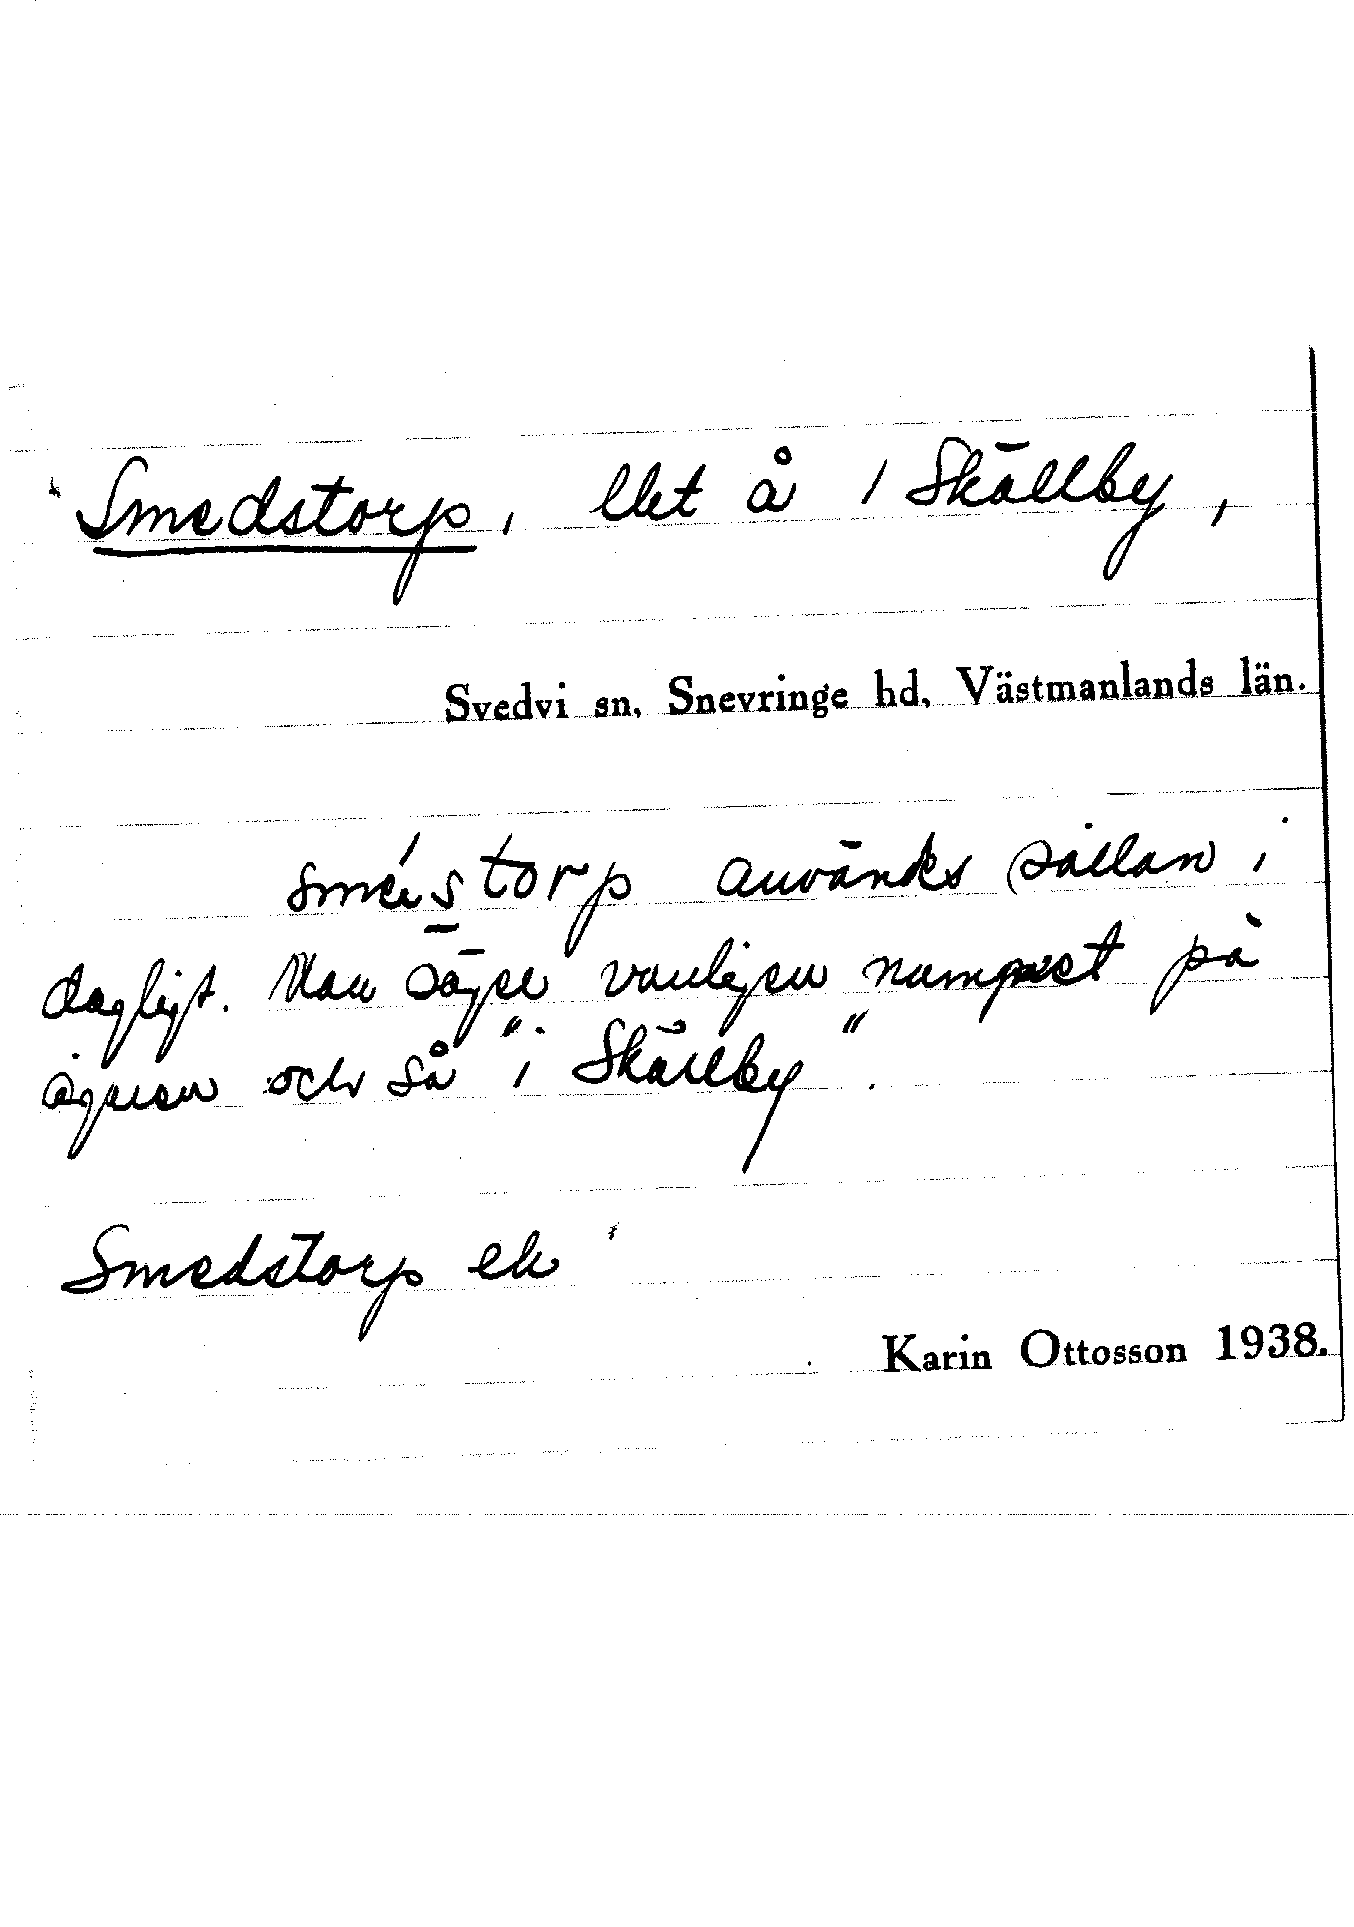 Smedstorp, llet å 1 Skällby,
Svedvi sn, Snevringe hd, Västmanlands län.
sméstorp användes sällan i
dagligt. Man säger vanligen namnet på
ägaren och så "i Skällby".
Smedstorp ek
Karin Ottosson 1938.